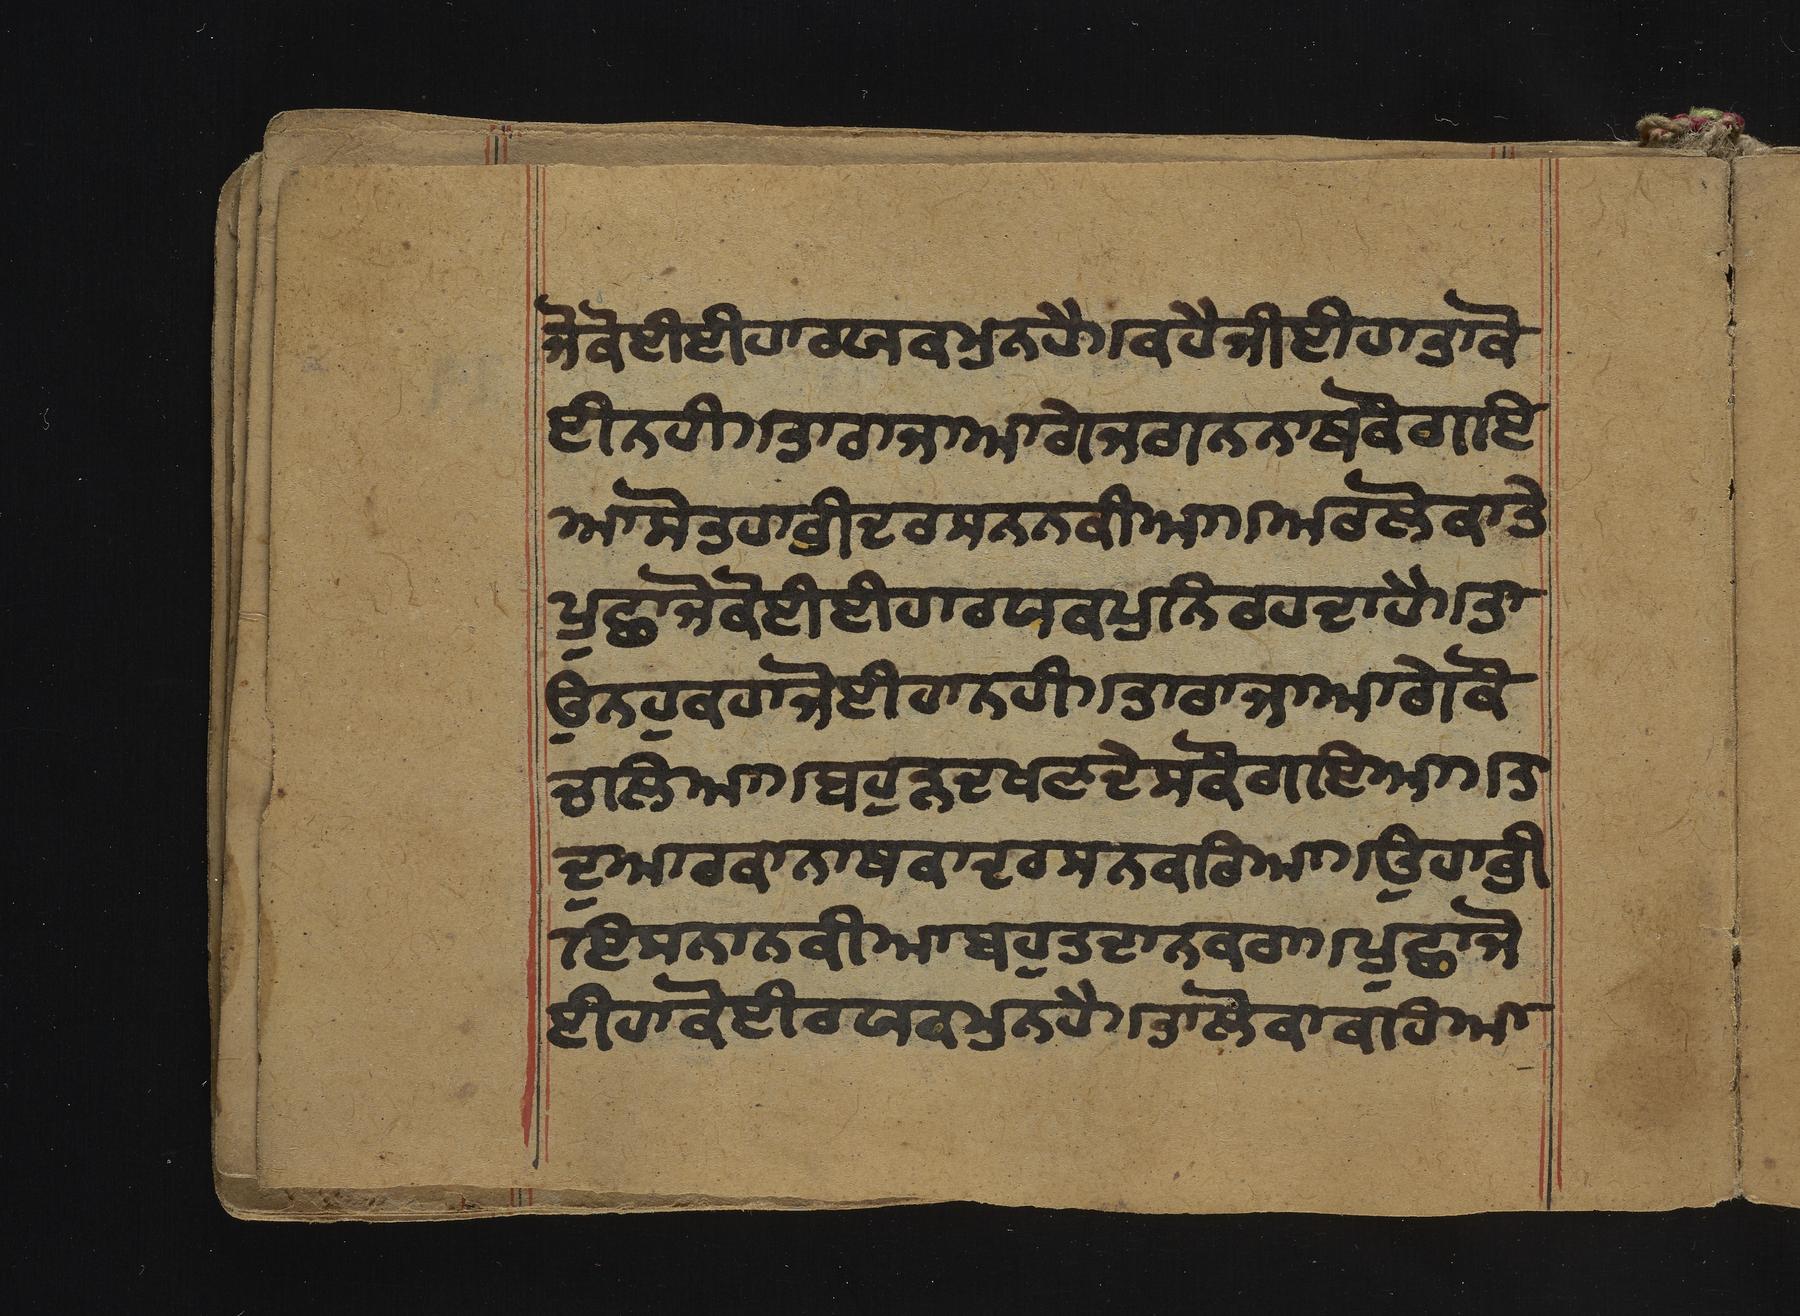 ਜੋਕੋਈਈਹਾਰਖਯਕਮੁਨਹੈ॥ਕਹੈਜੀਈਹਾਤਾਕੋ
ਈਨਹੀ॥ਤਾਰਾਜਾਆਗੇਜਗਨਨਾਥਕੌਗਇ
ਆਸੋਤਹਾਭੀਦਰਸਨਨਕੀਆ॥ਅਰਲੋਕਾਤੇ
ਪੁਛਾਜੋਕੋਈਈਹਾਰਖਯਕਮੁਨਿਰਹਦਾਹੈ॥ਤਾ
ਉਨਹੁਕਹਾਜੋਈਹਾਨਹੀ॥ਤਾਰਾਜਾਆਗੇਕੋ
ਚਲਿਆ॥ਬਹੁੜਦਖਣਦੇਸਕੌਗਇਆ॥ਤ
ਦੁਆਰਕਾਨਾਥਕਾਦਰਸਨਕਰਿਆ॥ਉਹਾਭੀ
ਇਸਨਾਨਕੀਆਬਹੁਤਦਾਨਕਰਾ॥ਪੁਛਾਜੋ
ਈਹਾਕੋਈਰਖਯਕਮੁਨਹੈ॥ਤਾਲੋਕਾਕਹਿਆ